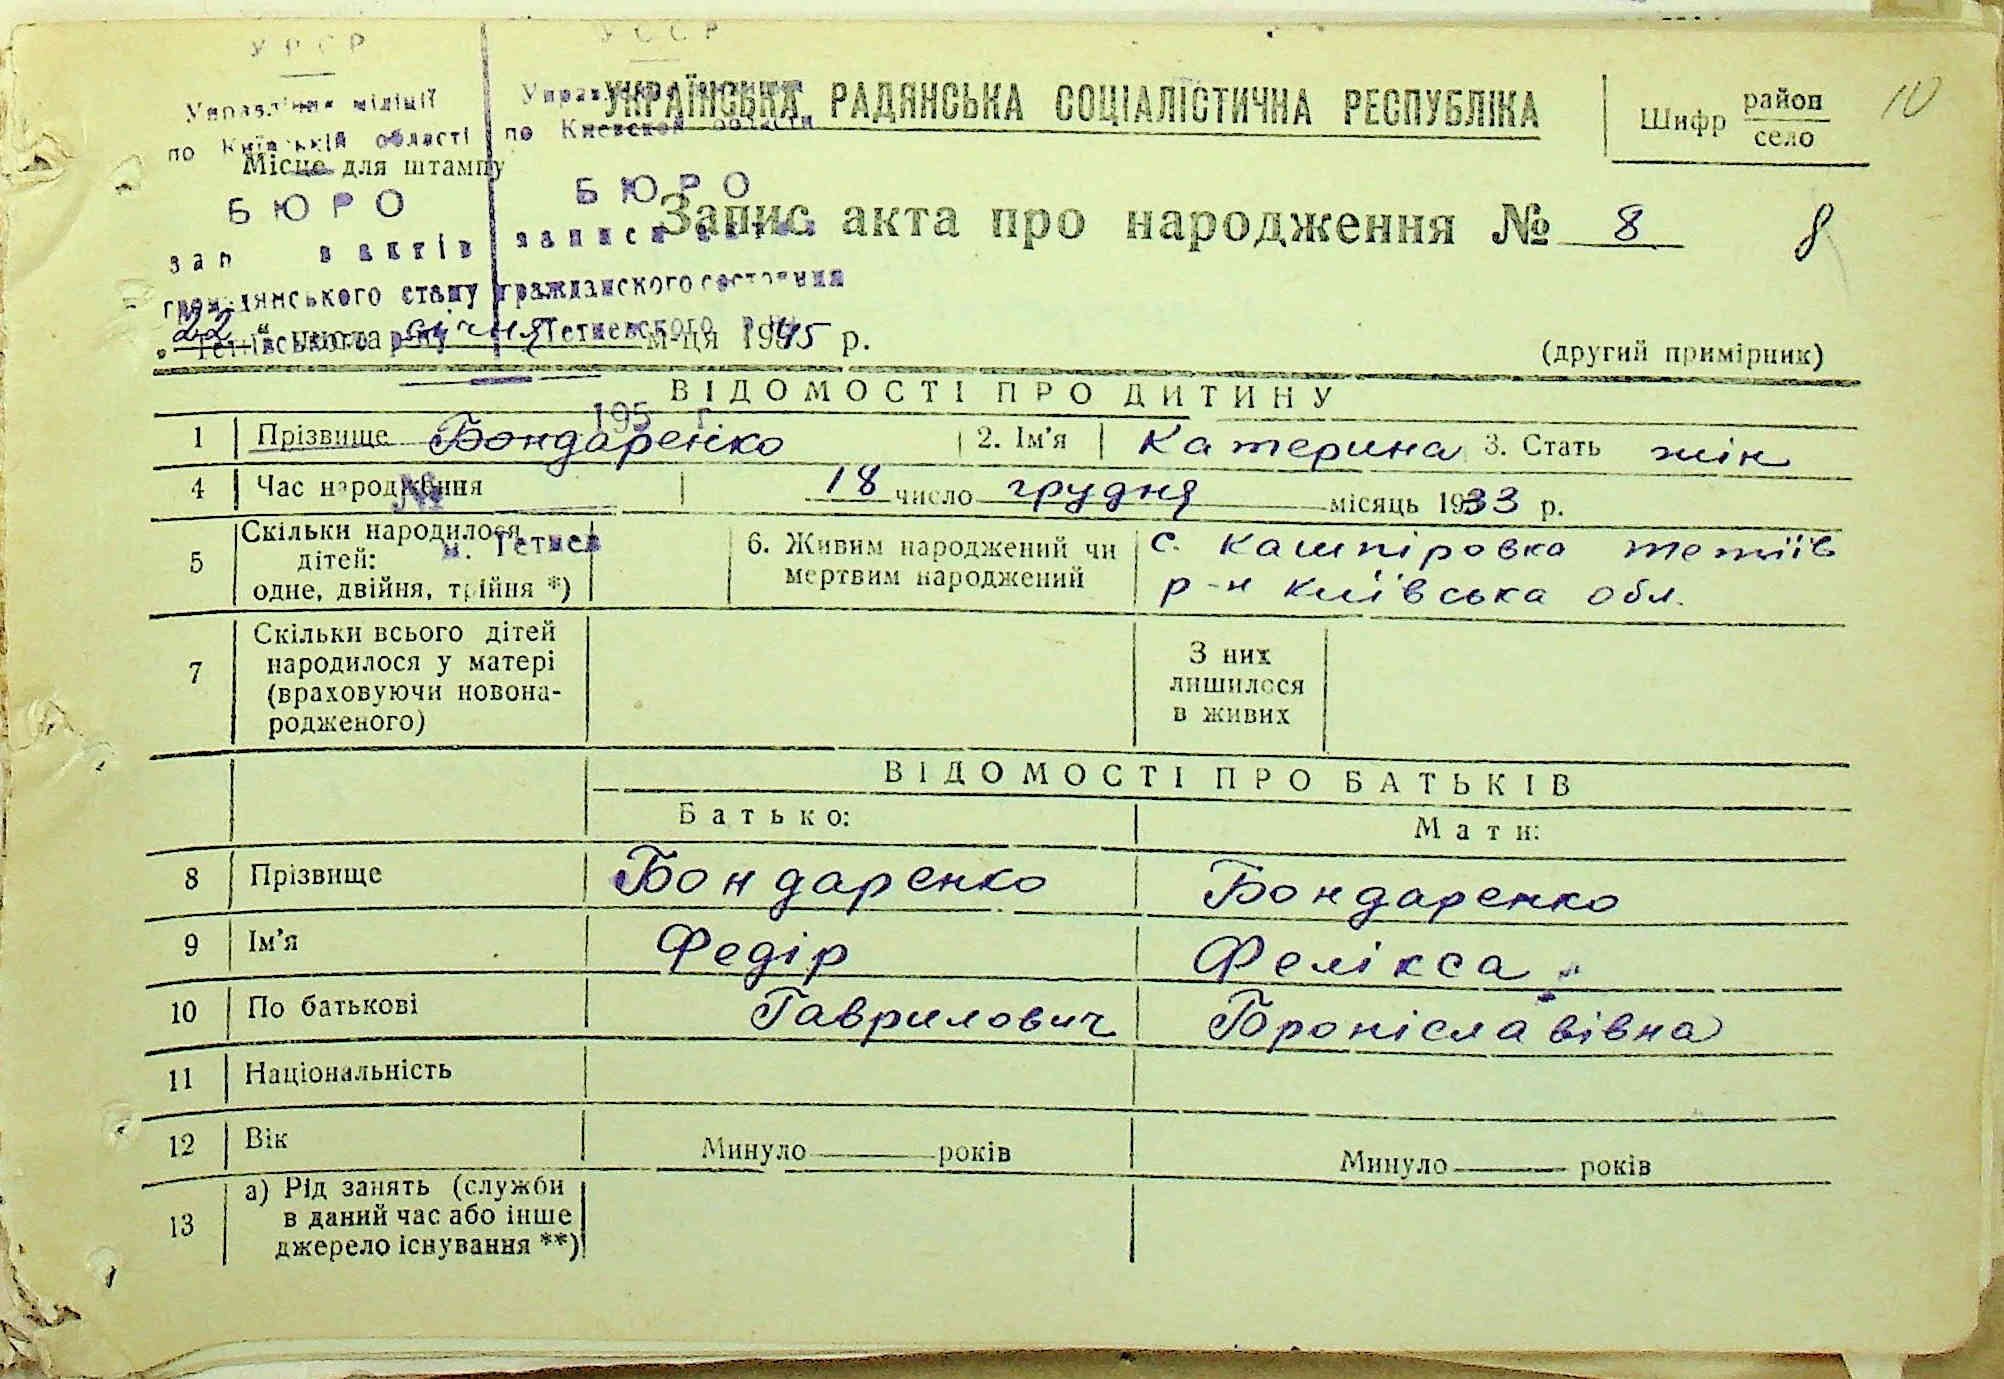 УРСР УССР
Управління міліції Управление милиции
УКРАЇНСЬКА РАДЯНСЬКА СОЦІАЛІСТИЧНА РЕСПУБЛІКА
Шифр район село
10
по Київській області по Киевской области
Місце для штампу
БЮРО БЮРО
Запис акта про народження № 8
8
зап в актів записи актов
громадянського стану гражданского состояния
Тетіївського р-ну Тетиевского р-на
22 " числа січня м-ця 1945 р.
(другий примірник)
ВІДОМОСТІ ПРО ДИТИНУ
195 г.
1 Прізвище Бондаренко 2. Ім'я Катерина 3. Стать жін
4 Час народження 18 число грудня місяць 1933 р.
№
5 Скільки народилося дітей: одне, двійня, трійня *) 6. Живим народжений чи мертвим народжений с. Кашпіровка тетіїв
р-н Київська обл.
м. Тетиев
7 Скільки всього дітей народилося у матері (враховуючи новонародженого) З них лишилося в живих
ВІДОМОСТІ ПРО БАТЬКІВ
Батько: Мати:
8 Прізвище Бондаренко Бондаренко
9 Ім'я Федір Фелікса
10 По батькові Гаврилович Броніславівна
11 Національність
12 Вік Минуло років Минуло років
13 а) Рід занять (служби
в даний час або інше
джерело існування **)